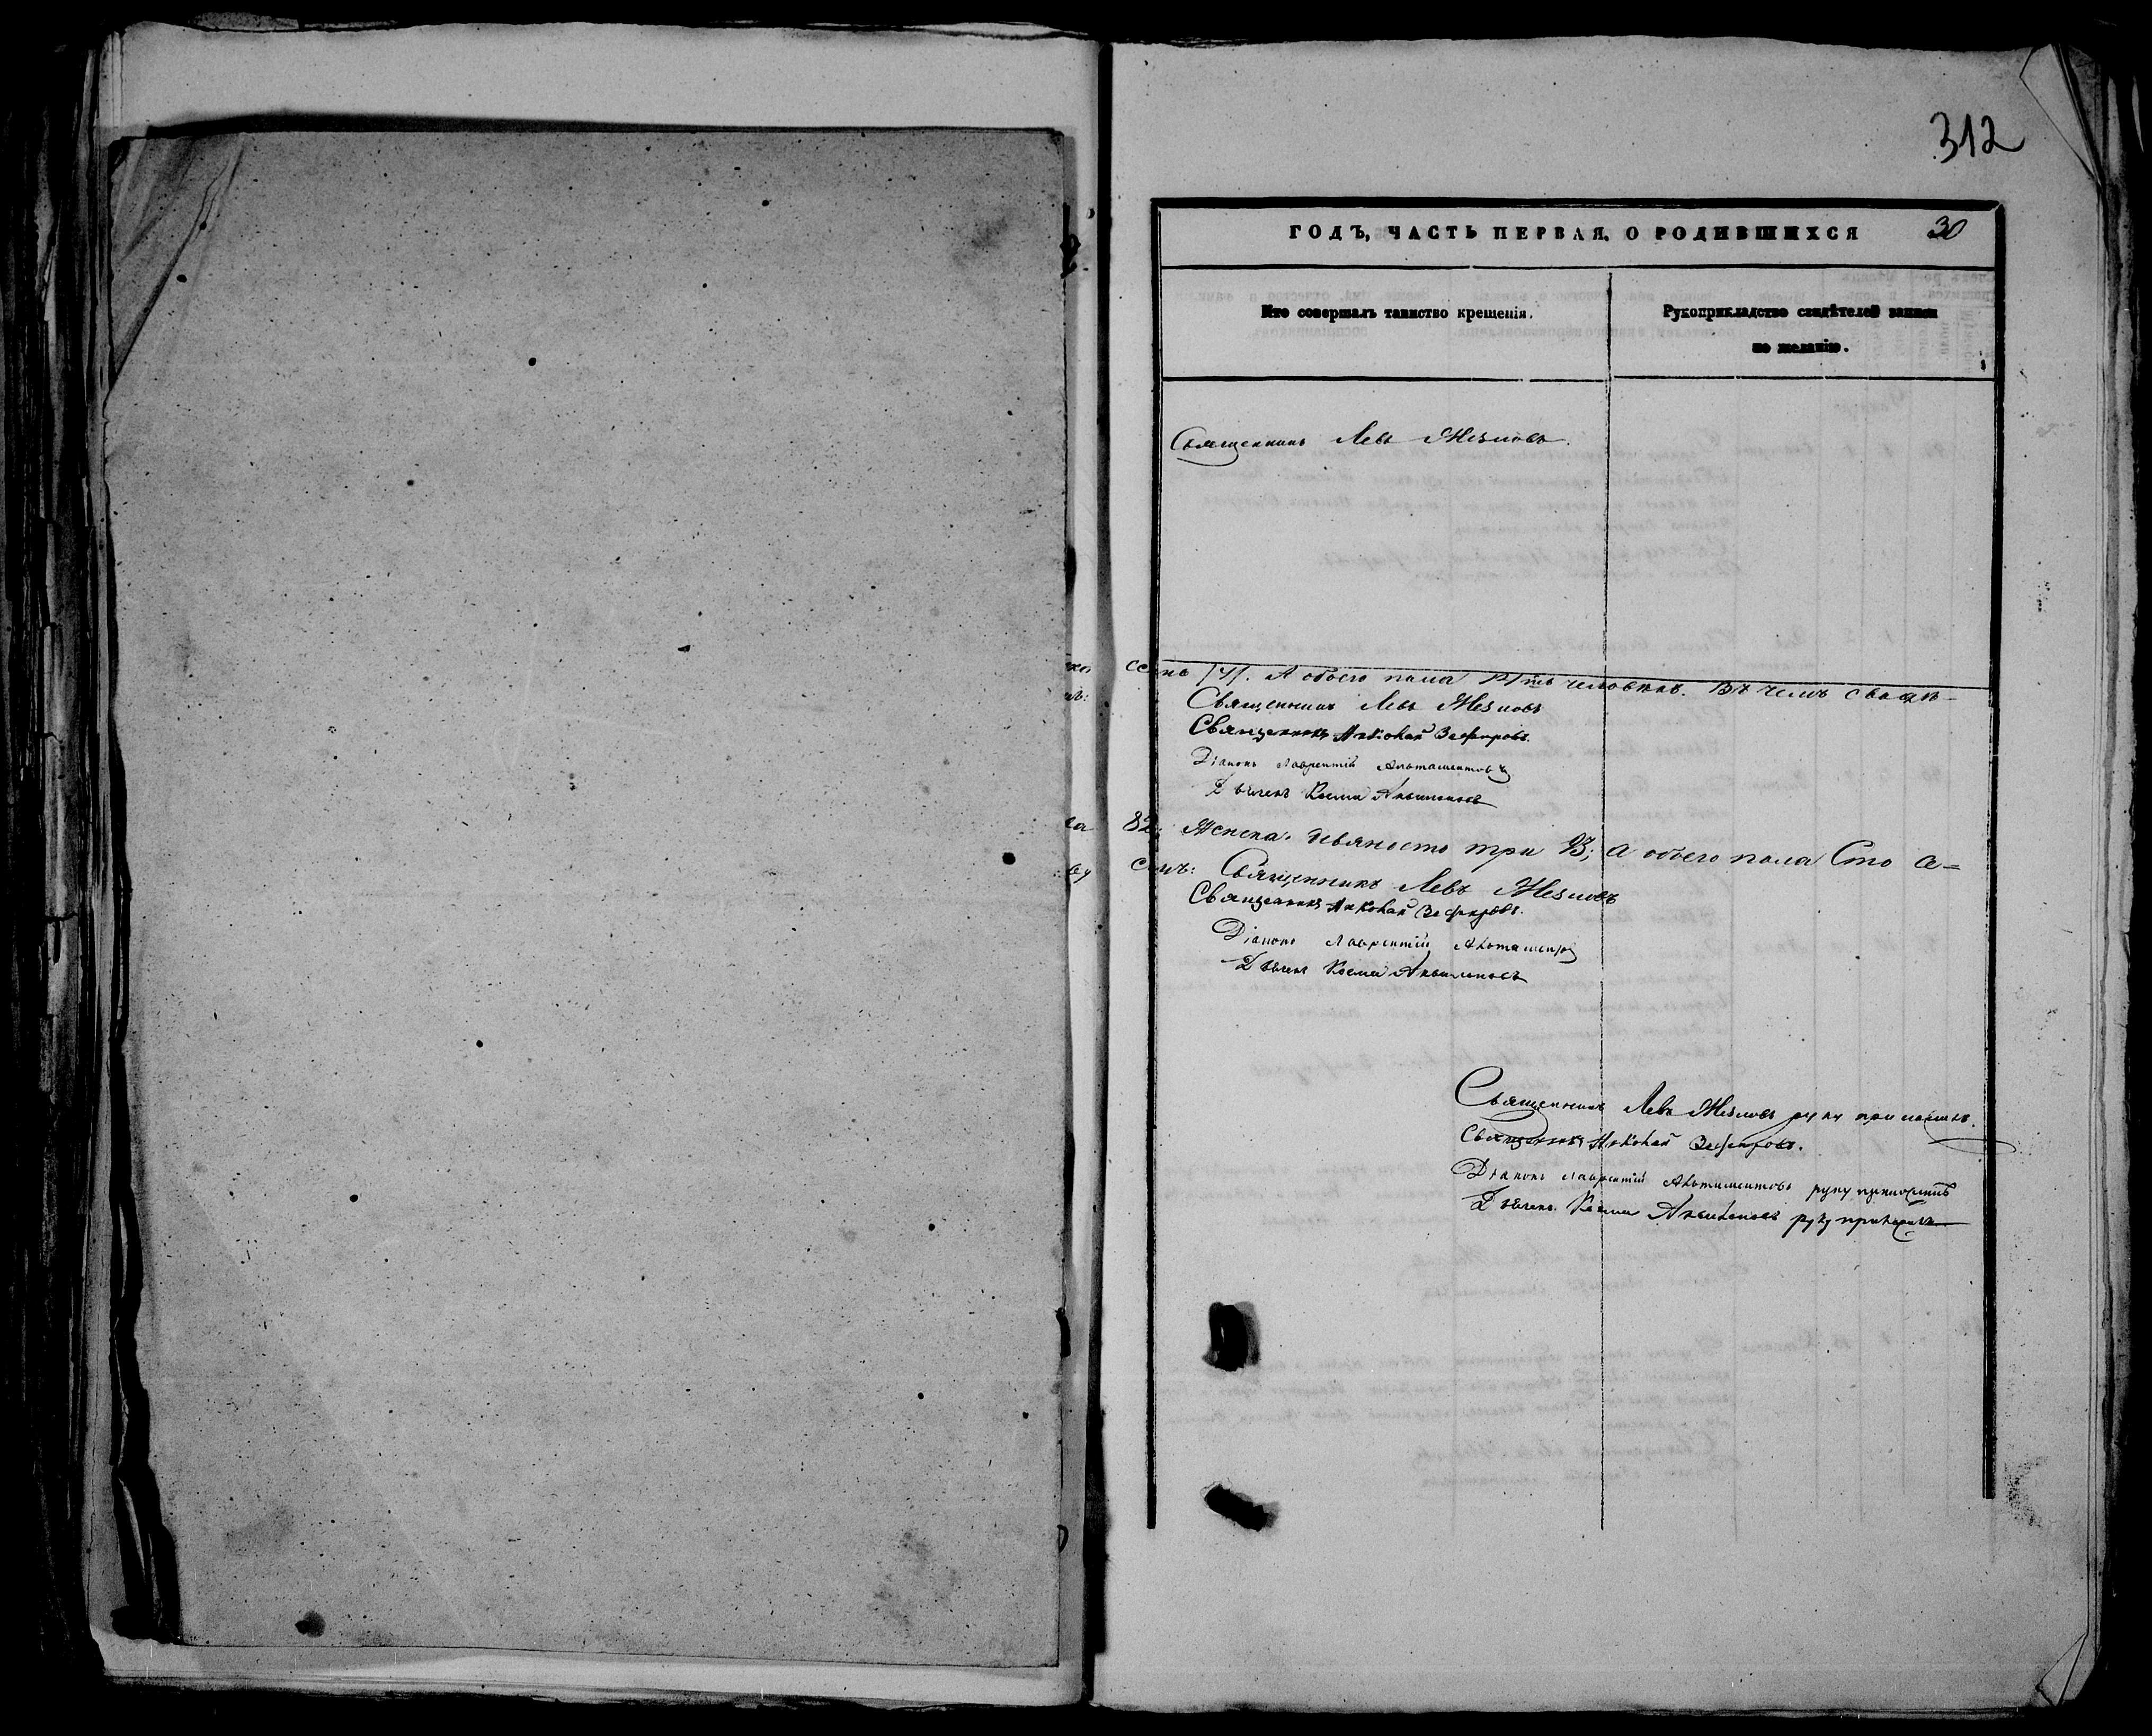 312
ГОДЪ, ЧАСТЬ ПЕРВАЯ, О РОДИВШИХСЯ 30
Кто совершалъ таинство крещенія.
Рукоприкладство свидѣтелей записи
по желанію.
Священникъ Левъ Жезловъ.
А обоего пола человѣкъ. Въ чемъ свидѣ-
Священникъ Левъ Жезловъ
Священникъ Николай Зефировъ.
Діаконъ Лаврентій Альтаментовъ
Дьячекъ Косма Аквилоновъ
82; Женска девяносто три 93; а обоего пола Сто се-
Священникъ Левъ Жезловъ
Священникъ Николай Зефировъ.
Діаконъ Лаврентій
Дьячекъ Косма Аквилоновъ
Священникъ Левъ Жезловъ руку приложилъ.
Священникъ Николай Зефировъ.
Діаконъ Лаврентій Альтаментовъ руку приложилъ
Дьячекъ Косма Аквилоновъ руку приложилъ